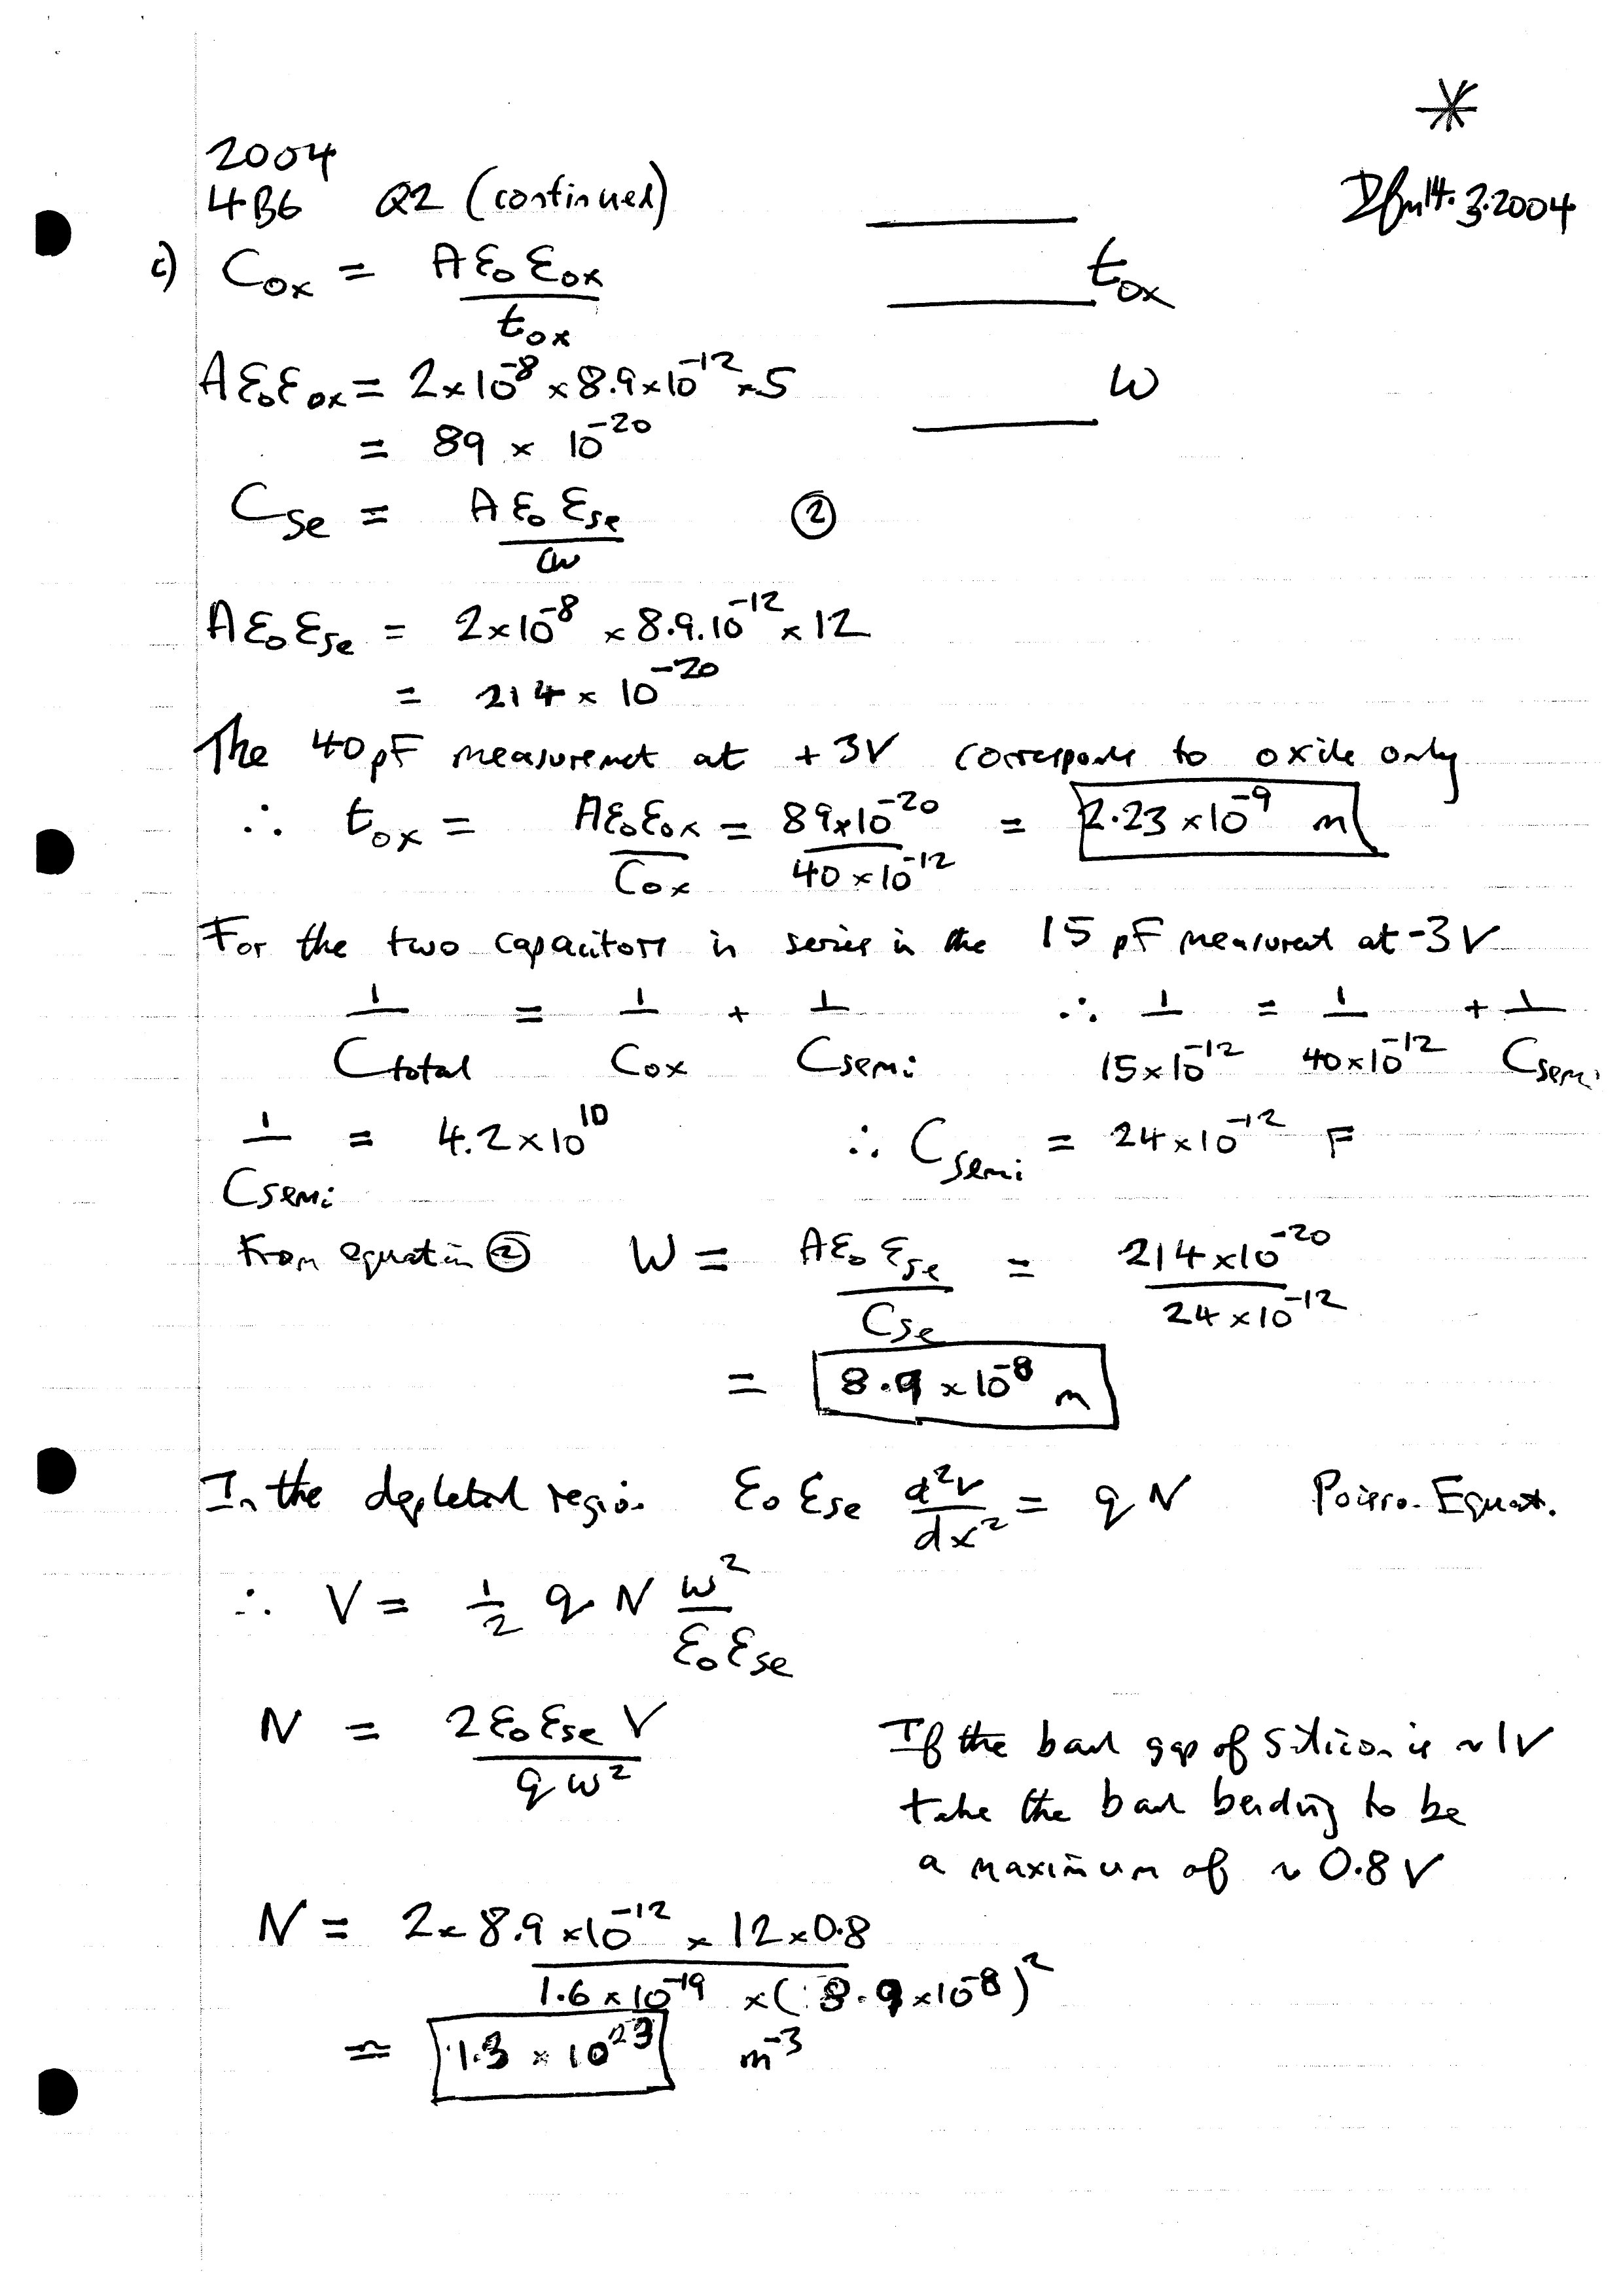 2004
4B6 Q2 (continued)
14.3.2004
c) Cox = Aε₀εox / tox
tox
Aε₀εox = 2×10⁻⁸ × 8.9×10⁻¹² × 5
w
= 89 × 10⁻²⁰
Cse = Aε₀εse / w ②
Aε₀εse = 2×10⁻⁸ × 8.9.10⁻¹² × 12
= 214 × 10⁻²⁰
The 40pF measuremet at +3V corresponds to oxide only
∴ tox = Aε₀εox / Cox = 89×10⁻²⁰ / 40×10⁻¹² = 2.23×10⁻⁹ m
For the two capacitors in series in the 15 pF measured at -3V
1/Ctotal = 1/Cox + 1/Csemi ∴ 1/15×10⁻¹² = 1/40×10⁻¹² + 1/Csemi
1/Csemi = 4.2×10¹⁰ ∴ Csemi = 24×10⁻¹² F
From equation ② W = Aε₀εse / Cse = 214×10⁻²⁰ / 24×10⁻¹²
= 8.9×10⁻⁸ m
In the depleted region ε₀εse d²V/dx² = qN Poisson Equat.
∴ V = ½ qN w² / ε₀εse
N = 2ε₀εse V / qw²
If the band gap of silicon is ~1V
take the band bending to be
a maximum of ~ 0.8V
N = 2×8.9×10⁻¹² × 12×0.8 / 1.6×10⁻¹⁹ ×(8.9×10⁻⁸)²
≃ 1.3 × 10²³ m⁻³